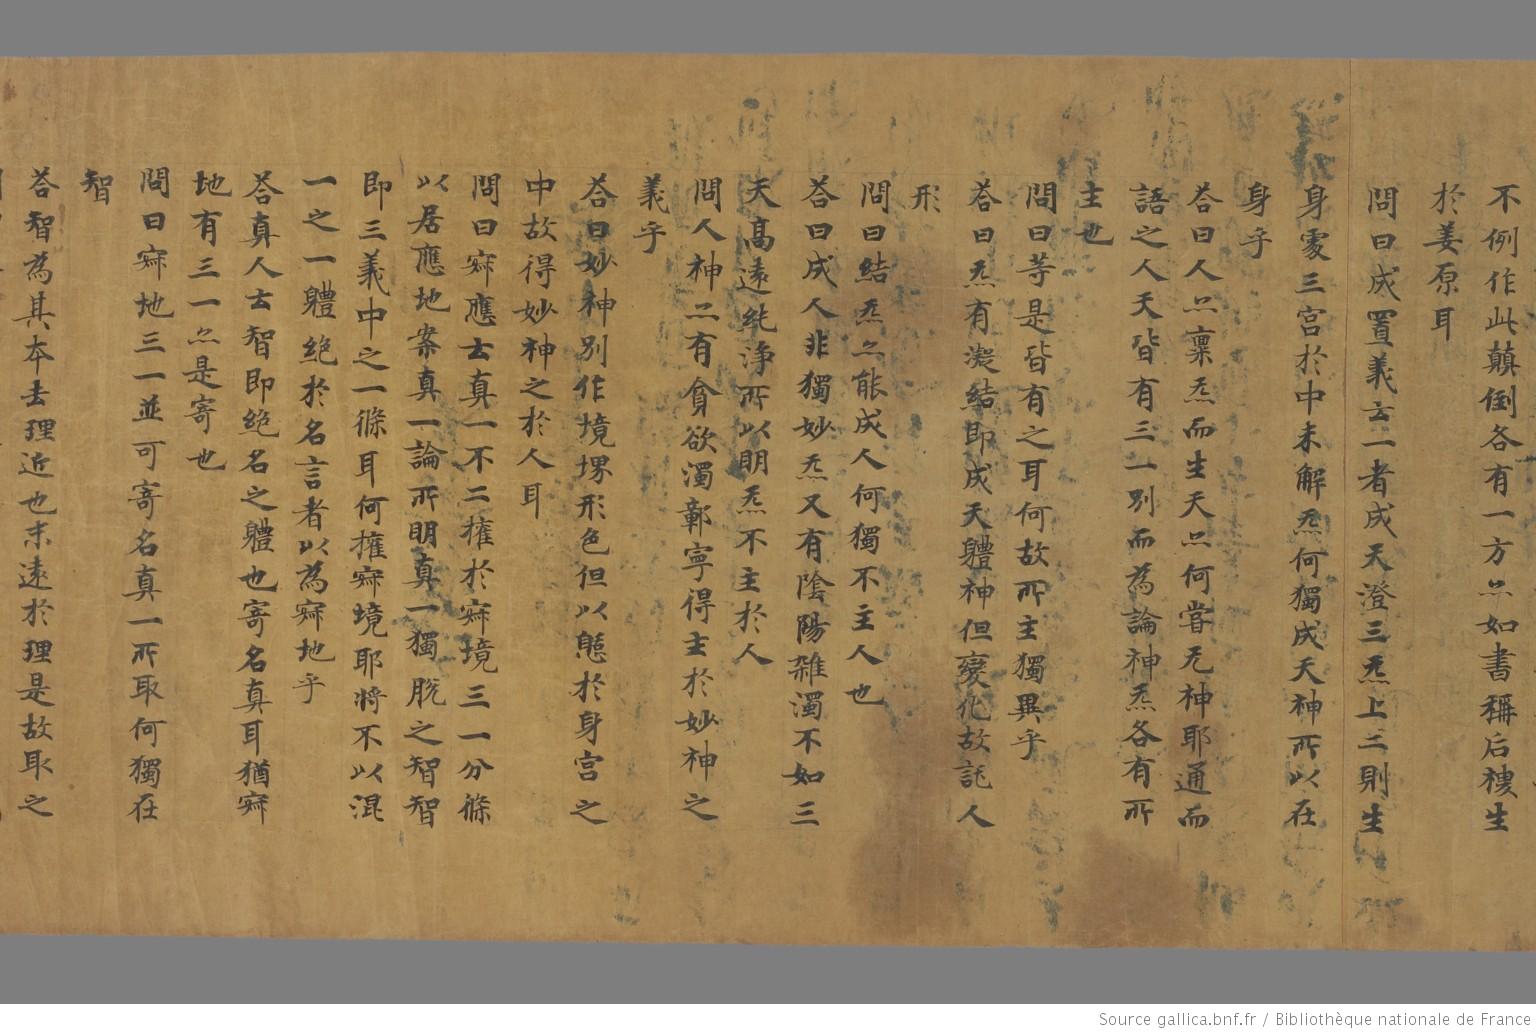 不例作此顛倒各有一方亦如書稱后稷生
於姜原耳
問曰成置義云一者成天澄三炁上二則生
身處三宮於中未解炁何獨成天神所以在
身乎
荅曰人亦稟炁而生天亦何甞无神耶通而
語之人天皆有三一別而為論神炁各有所
主也
問曰等是皆有之耳何故所主獨異乎
荅曰炁有凝結即成天軆神但變化故託人
形
問曰結炁亦能成人何獨不主人也
荅曰成人非獨妙炁又有陰陽雑濁不如三
天高遠純浄所以明炁不主於人
問人神亦有貪欲濁鄣寧得主於妙神之
義乎
荅曰妙神別作境堺形色但以態於身宮之
中故得妙神之於人耳
問曰寂應云真一不二攉於寂境三一分條
以居應地案真一論所明真一獨脫之智智
即三義中之一條耳何攉寂境耶將不以混
一之一軆絶於名言者以為寂地乎
荅真人云智即絶名之軆也寄名真耳猶寂
地有三一亦是寄也
問曰寂地三一並可寄名真一所取何獨在
智
荅智為其本去理近也末遠於理是故取之
Source gallica.bnf.fr / Bibliothèque nationale de France